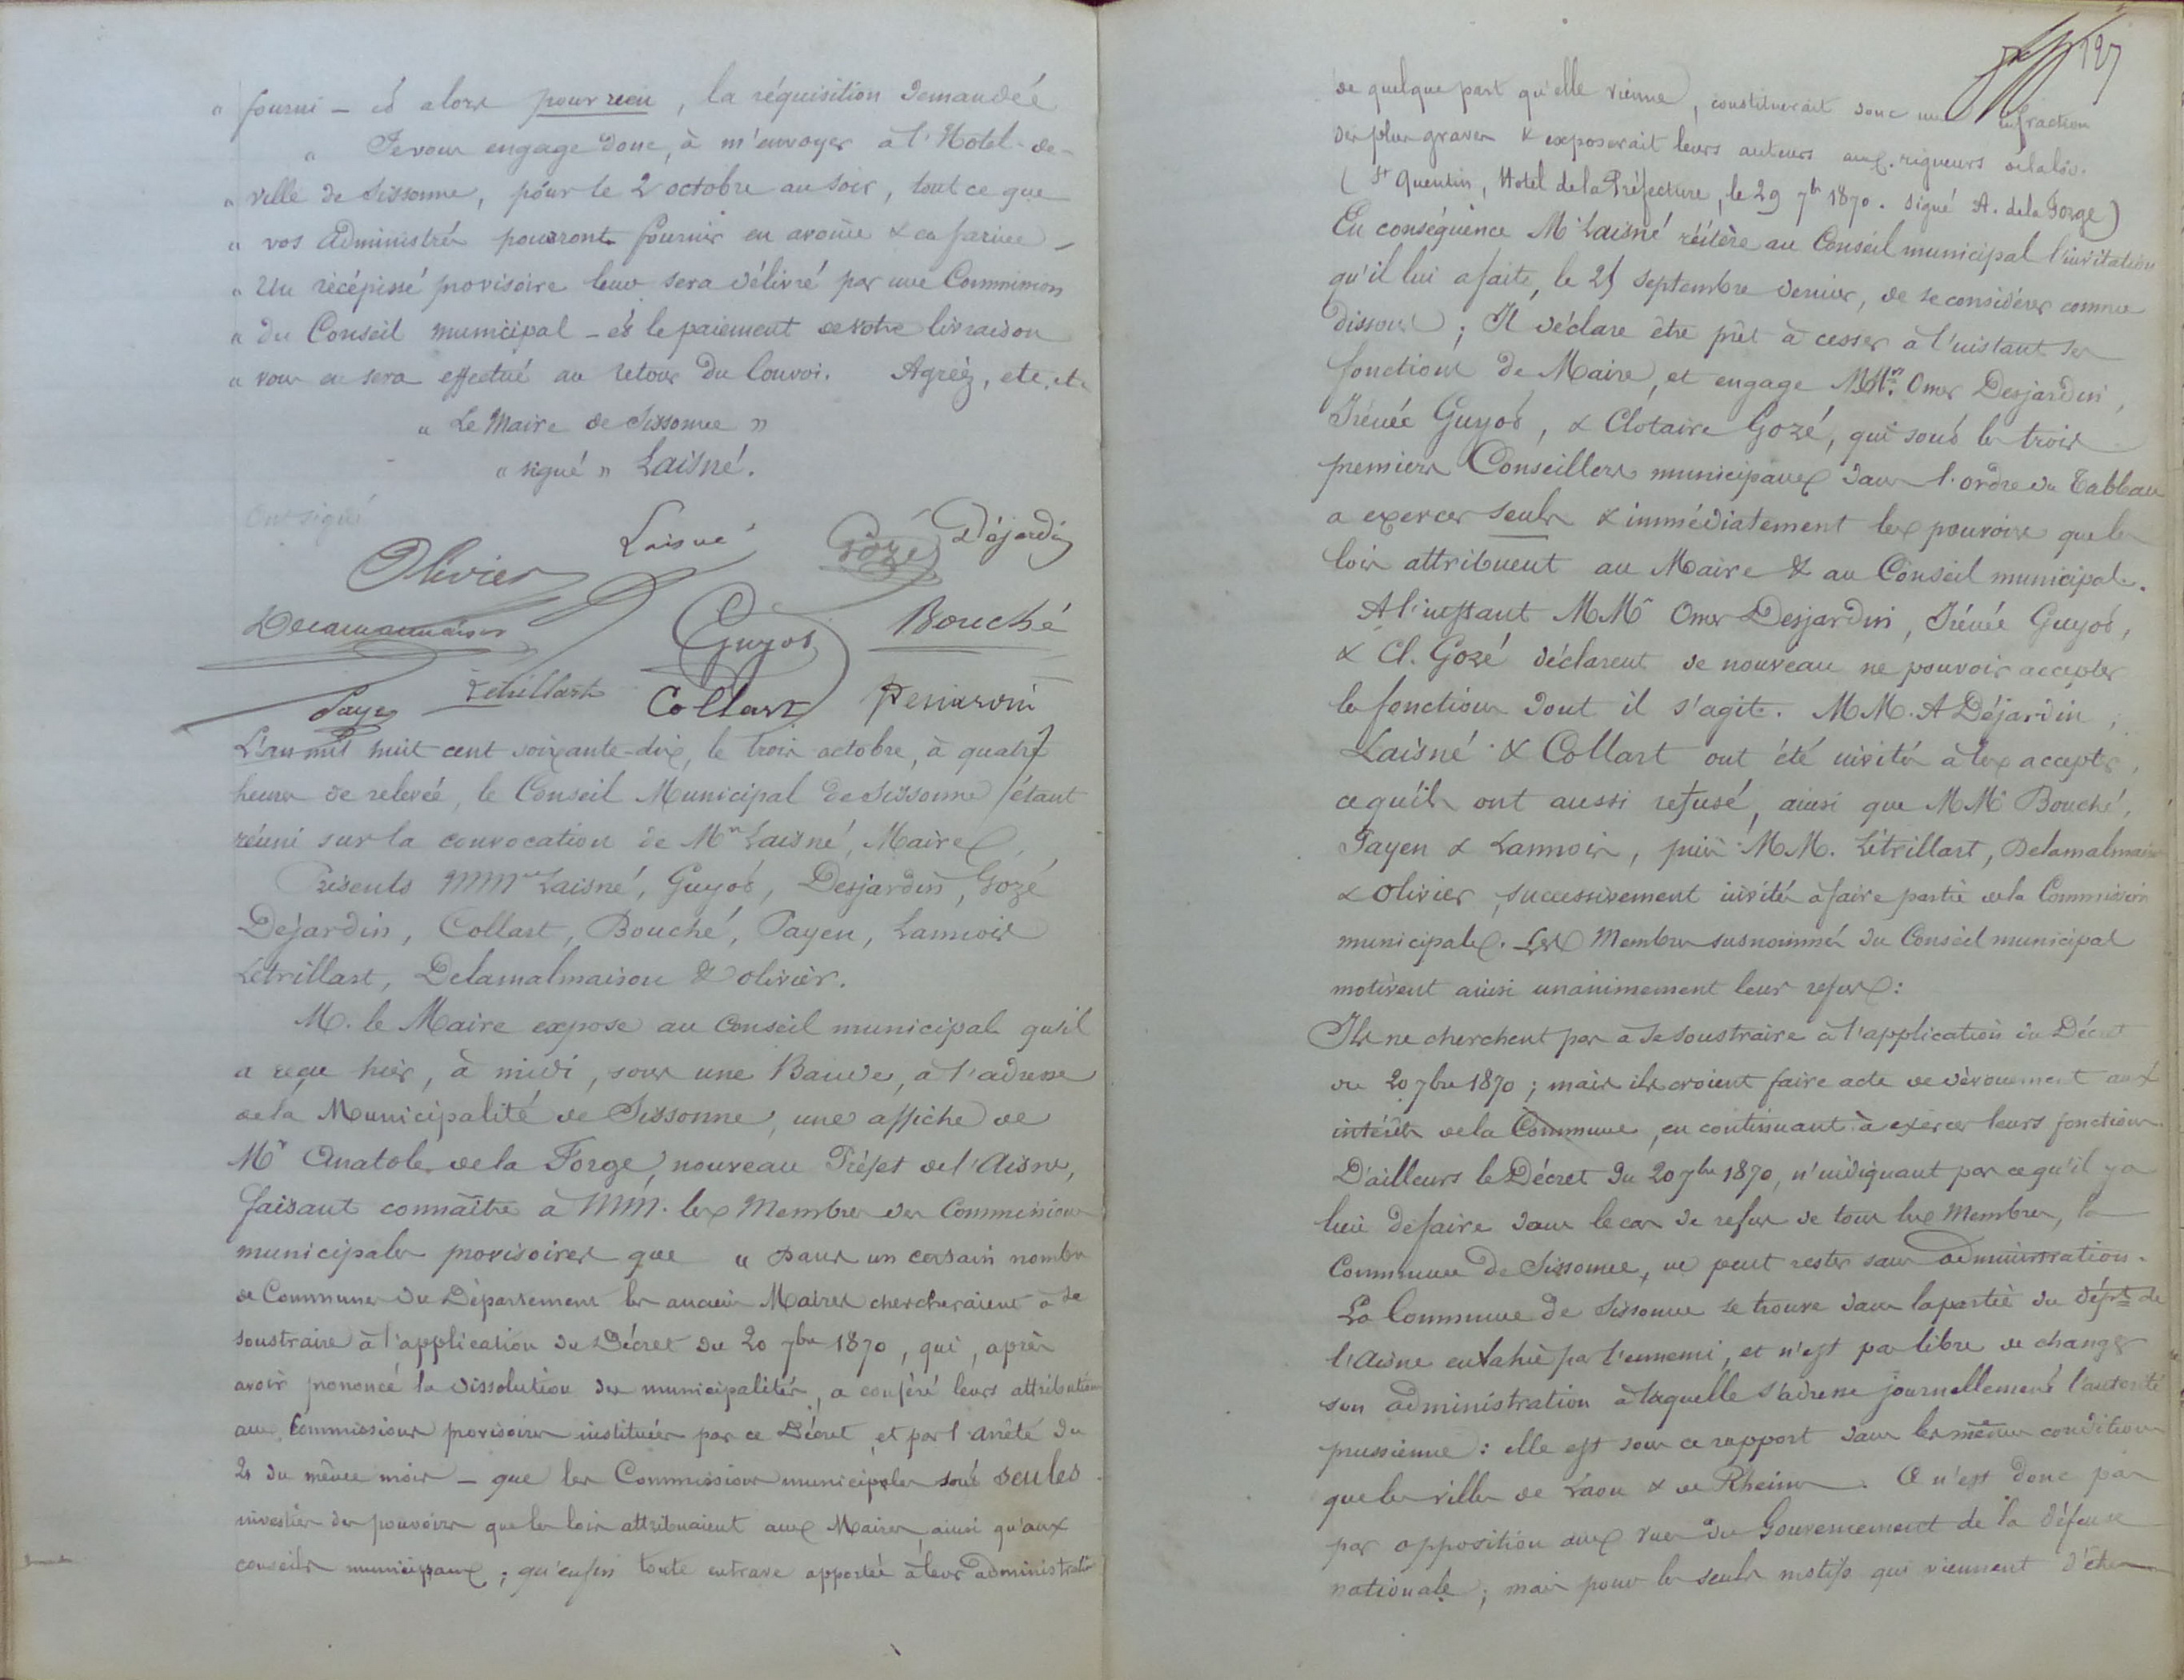 " fourni — et alors pour rien, la réquisition demandée
" Je vous engage donc, à m'envoyer à l'Hotel-de-
" ville de Sissonne, pour le 2 octobre au soir, tout ce que
" vos administrés pourront fournir en avoine & en farine —
" Un récépissé provisoire leur sera délivré par une Commission
" du Conseil municipal — et le paiement de votre livraison
" vous en sera effectué au retour du Convoi. Agréez, etc, etc
" Le Maire de Sissonne "
" signé " Laisné.
Ont signé
Laisné Gozé Déjardin
Olivier
Delamalmaison Guyot Bouché
Payen Létrillart Collart
L'an mil huit cent soixante-dix, le trois octobre, à quatre
heures de relevée, le Conseil Municipal de Sissonne, étant
réuni sur la convocation de Mr Laisné, Maire,
Présents MMrs Laisné, Guyot, Desjardin, Gozé
Déjardin, Collart, Bouché, Payen, Lannois
Létrillart, Delamalmaison & Olivier.
M. le Maire expose au Conseil municipal qu'il
a reçu hier, à midi, sous une Bande, à l'adresse
de la Municipalité de Sissonne, une affiche de
Mr Anatole de la Forge, nouveau Préfet de l'Aisne,
faisant connaître à MM. les Membres des Commissions
municipales provisoires que " dans un certain nombre
de Communes du Département les anciens Maires chercheraient à se
soustraire à l'application du Décret du 20 7bre 1870, qui, après
avoir prononcé la dissolution des municipalités, a conféré leurs attributions
aux Commissions provisoires instituées par ce Décret, et par l'arrêté du
21 du même mois — que les Commissions municipales sont seules
investies des pouvoirs que les lois attribuaient aux Maires, ainsi qu'aux
conseils municipaux ; qu'enfin toute entrave apportée à leur administration
127
de quelque part qu'elle vienne, constituerait donc une infraction
des plus graves & exposerait leurs auteurs aux rigueurs de la loi.
(St Quentin, Hotel de la Préfecture, le 29 7br 1870. signé A. de la Forge)
En conséquence Mr Laisné réitère au Conseil municipal l'invitation
qu'il lui a faite, le 25 septembre dernier, de se considérer comme
dissous ; Il déclare être prêt à cesser à l'instant ses
fonctions de Maire, et engage MMrs. Omer Desjardin,
Irénée Guyot, & Clotaire Gozé, qui sont les trois
premiers Conseillers municipaux dans l'ordre du Tableau
a exercer seuls & immédiatement les pouvoirs que les
lois attribuent au Maire & au Conseil municipal.
A l'instant MMrs Omer Desjardin, Irénée Guyot,
& Cl. Gozé déclarent de nouveau ne pouvoir accepter
les fonctions dont il s'agit. MM. A Déjardin,
Laisné & Collart ont été invités à les accepter,
ce qu'ils ont aussi refusé, ainsi que MMrs Bouché,
Payen & Lannois, puis MM. Létrillart, Delamalmaison
& Olivier, successivement invités à faire partie de la Commission
municipale. Les Membres susnommés du Conseil municipal
motivent ainsi unanimement leur refus :
Ils ne cherchent pas à se soustraire à l'application du Décret
du 20 7bre 1870 ; mais ils croient faire acte de dévouement aux
intérêts de la Commune, en continuant à exercer leurs fonctions.
D'ailleurs le Décret du 20 7bre 1870, n'indiquant pas ce qu'il y a
lieu de faire dans le cas de refus de tous les Membres, la
Commune de Sissonne, ne peut rester sans administration.
La Commune de Sissonne se trouve dans la partie du dépt de
l'Aisne envahie par l'ennemi, et n'est pas libre de changer
son administration à laquelle s'adresse journellement l'autorité
prussienne : elle est sous ce rapport dans les mêmes conditions
que les villes de Laon & de Rheims. Ce n'est donc pas
par opposition aux vues du Gouvernement de la défense
nationale ; mais pour les seuls motifs qui viennent d'être